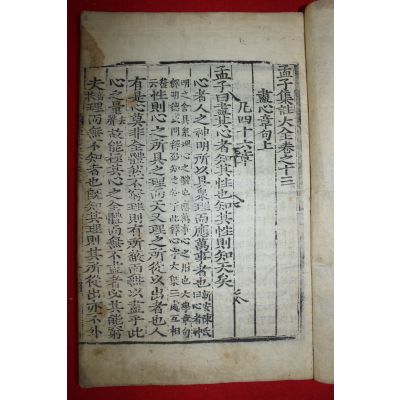 孟子集註大全卷之十三
盡心章句上
凡四十六章
孟子曰盡其心者知其性也知其性則知天矣
心者人之神明所以具衆理而應萬事者也
性則心之所具之理而天又理之所從以出者也人
有是心莫非全體然不窮理則有所蔽而無以盡乎此
心之量故能極其心之全體而無不盡者必其能窮
夫理而無不知者也旣知其理則其所從出亦不外